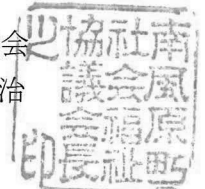 会
治
南風原町
社会福祉
協議会長
之印